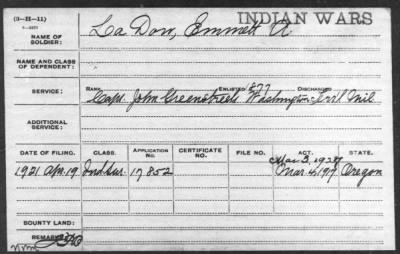 INDIAN WARS
(3-H-11)
NAME OF SOLDIER: La Dow, Emmett A.
NAME AND CLASS OF DEPENDENT:
RANK ENLISTED 1877 DISCHARGED
SERVICE: Capt. John Greenstreets Washington Ter'l Mil
ADDITIONAL SERVICE:
DATE OF FILING. CLASS. APPLICATION No. CERTIFICATE NO. FILE NO. ACT. STATE.
Mar 3, 1927
1921 Apr. 19 Ind Sur. 17852 Mar. 4, 1917 Oregon
BOUNTY LAND:
REMARKS: